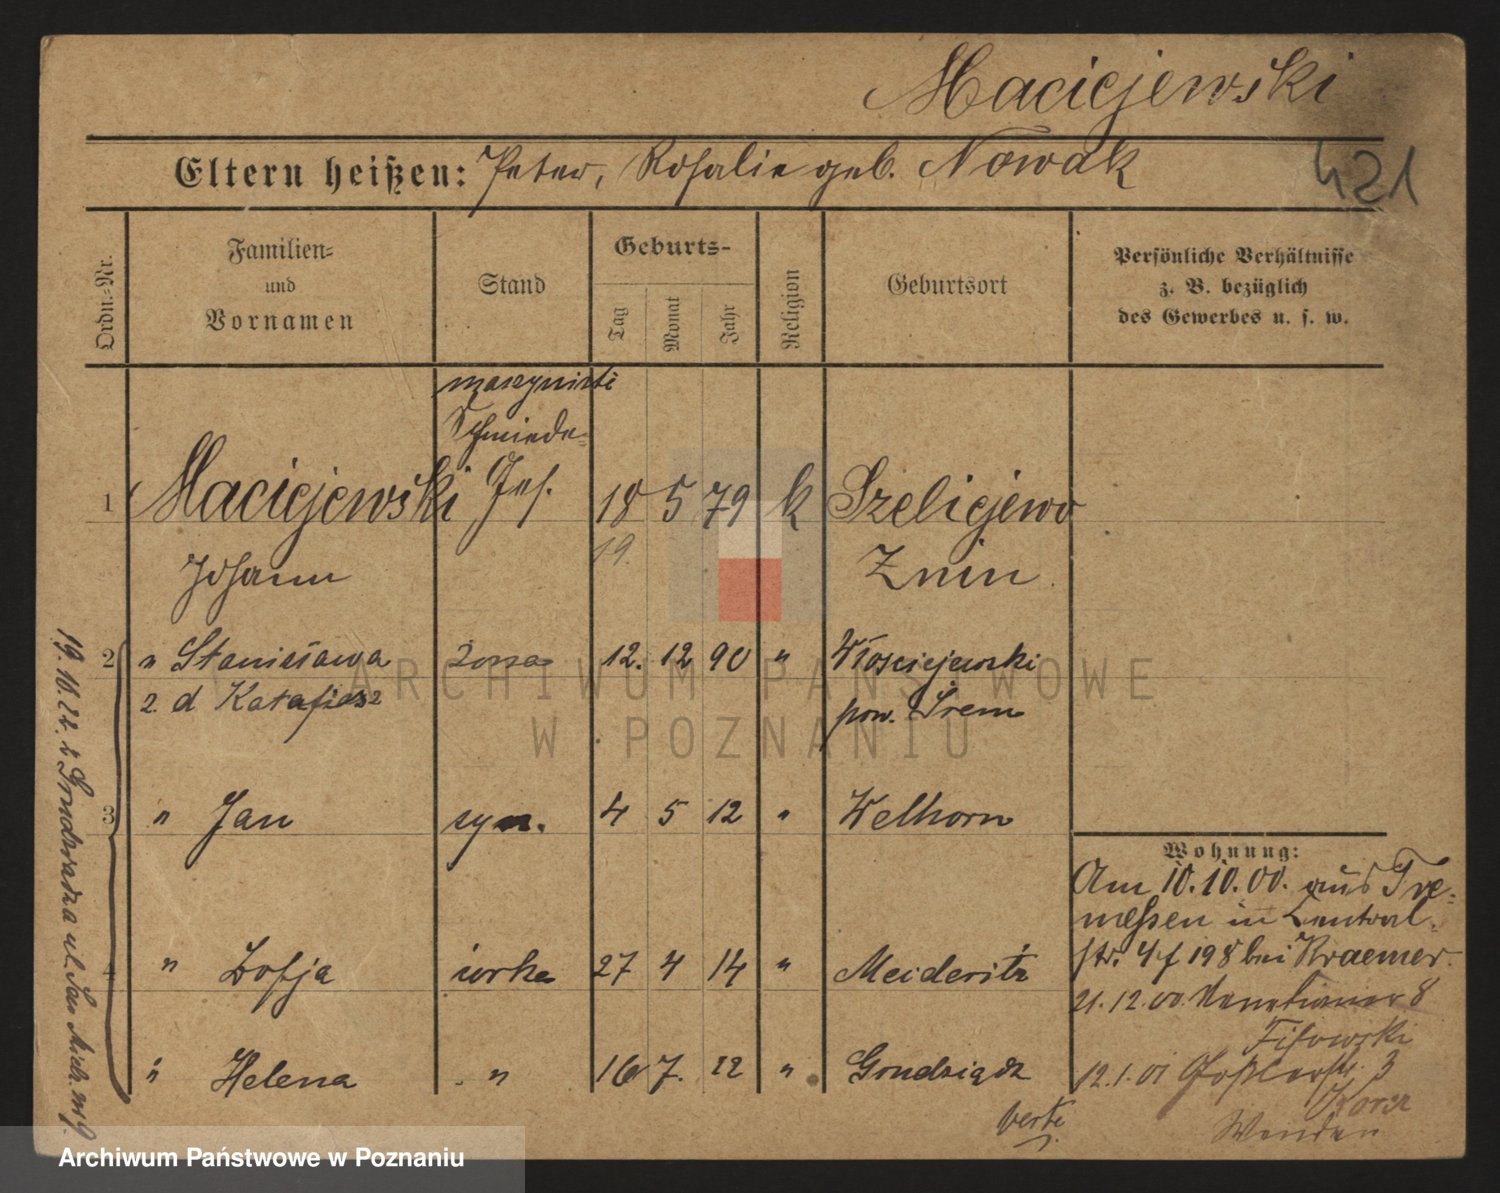 Maciejewski
421
Eltern heißen: Peter, Rosalie geb. Nowak
Ordn.-Nr.
Familien-
und
Vornamen
Stand
Geburts-
Tag
Monat
Jahr
Religion
Geburtsort
Persönliche Verhältnisse
z. B. bezüglich
des Gewerbes u. s. w.
Schmiede-
1 Maciejewski Ges. 18 5 79 k Szeliejewo
19.
Johann Znin
2 " Stanisława żona 12. 12 90 " Włosciejewski
z. d pow. Śrem
3 " Jan syn. 4 5 12 " Welhorn
4 " Zofja córka 27 4 14 "
" Helena " 16 7. 22 " Grudziądz
Wohnung:
Am 10.10.00. aus Tre-
messen in Central-
str. 4 f 198 bei Kraemer.
21.12.00. 8
12.1.01 3
Wenden
verte
19. 10. 22. z Grudziądza ul.
ARCHIWUM PAŃSTWOWE
W POZNANIU
Archiwum Państwowe w Poznaniu